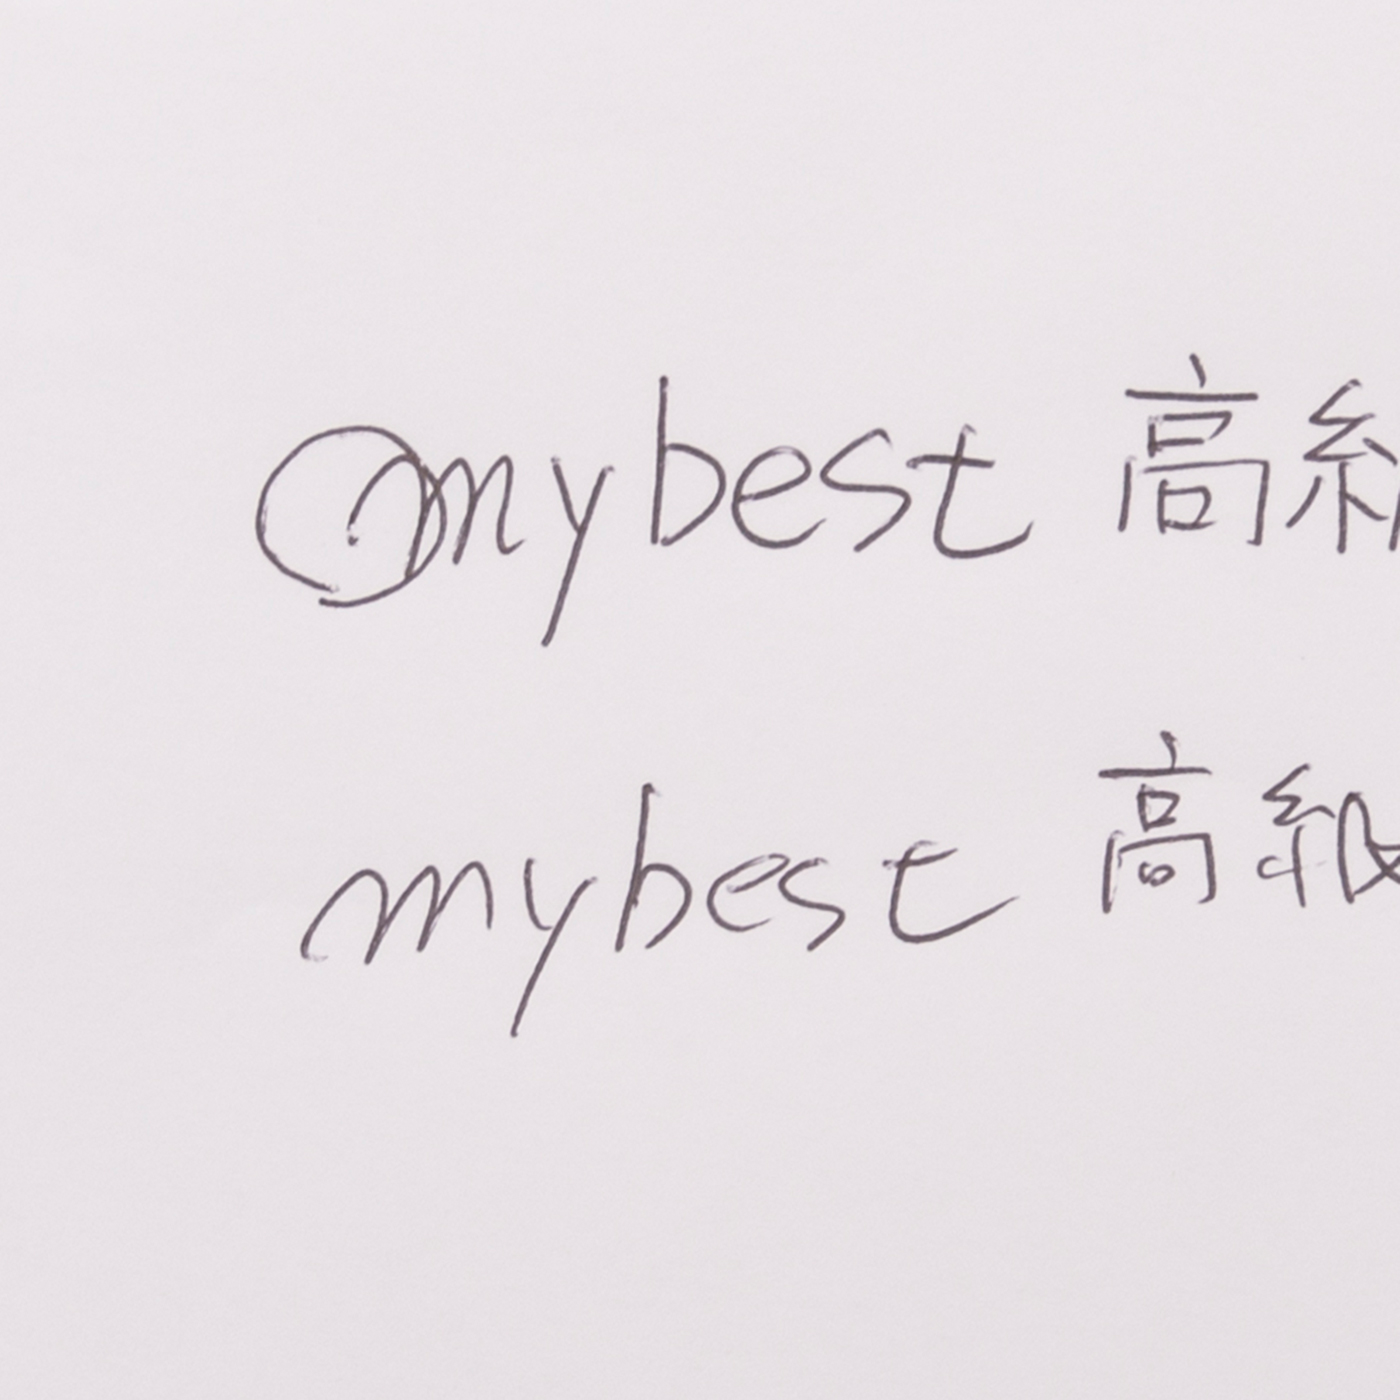 mybest 高級
mybest 高級